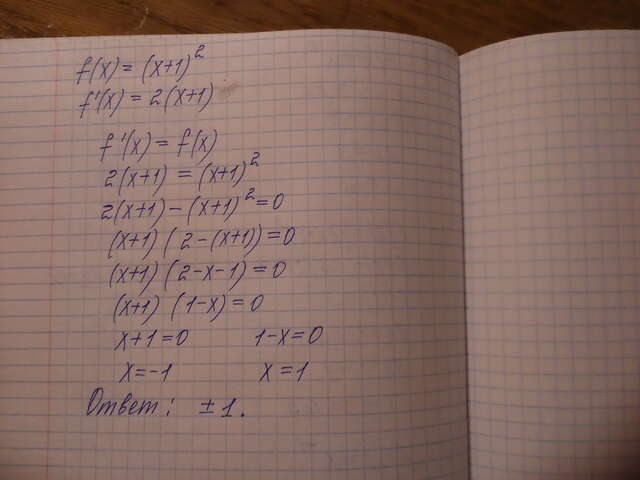 f(x) = (x+1)²
f'(x) = 2(x+1)
f'(x) = f(x)
2(x+1) = (x+1)²
2(x+1) - (x+1)² = 0
(x+1)(2-(x+1)) = 0
(x+1)(2-x-1) = 0
(x+1) (1-x) = 0
x+1=0 1-x=0
x=-1 x=1
Ответ: ±1.